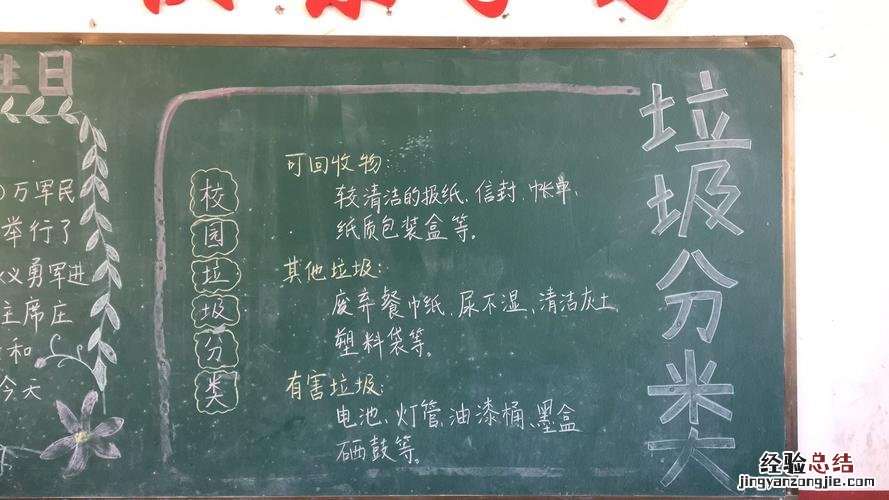 生日
万军民
举行了
义勇军进
主席庄
和
今天
校园垃圾分类
可回收物:
较清洁的报纸、信封、帐单、
纸质包装盒等。
其他垃圾:
废弃餐巾纸、尿不湿、清洁灰土、
塑料袋等。
有害垃圾:
电池、灯管、油漆桶、墨盒
硒鼓等。
垃圾分类
经验总结
jingyanzongjie.com